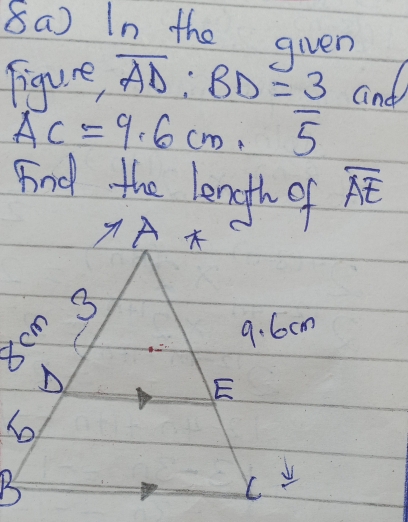 8a) In the given
Figure, AD : BD = 3/5 and
AC = 9.6 cm.
Find the length of AE
A
3
8 cm
9.6cm
D
E
B
C